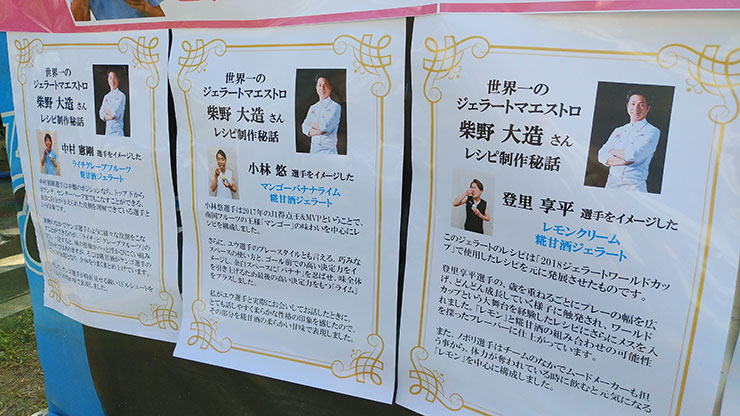 世界一の
ジェラートマエストロ
柴野 大造 さん
レシピ制作秘話
中村 憲剛 選手をイメージした
ライチグレープフルーツ
糀甘酒ジェラート
世界一の
ジェラートマエストロ
柴野 大造 さん
レシピ制作秘話
小林 悠 選手をイメージした
マンゴーバナナライム
糀甘酒ジェラート
小林悠選手は2017年のJ1得点王&MVPということで、
南国フルーツの王様「マンゴー」の味わいを中心にレ
シピを構成しました。
さらに、ユウ選手のプレースタイルとも言える、巧みな
スペースの使い方と、ゴール前での高い決定力をイ
メージし、余白スペースに「バナナ」をとばせ、味全体
を引き上げるため最後の高い決定力をもつ「ライム」
をプラスしました。
私がユウ選手と実際にお会いしてお話したときに、
とても話しやすく柔らかな性格の印象を感じたので、
その部分を糀甘酒の柔らかい甘味で表現しました。
世界一の
ジェラートマエストロ
柴野 大造 さん
レシピ制作秘話
登里 享平 選手をイメージした
レモンクリーム
糀甘酒ジェラート
このジェラートのレシピは「2018ジェラートワールドカッ
プ」で使用したレシピを元に発展させたものです。
登里享平選手の、歳を重ねるごとにプレーの幅を広
げ、どんどん成長していく様子に触発され、ワールド
カップという大舞台を経験したレシピにさらにメスを入
れました。「レモン」と糀甘酒の組み合わせの可能性
を探ったフレーバーに仕上がっています。
また、ノボリ選手はチームのなかでムードメーカーも担
う事から、体力が奪われている時に飲むと元気になる
「レモン」を中心に構成しました。